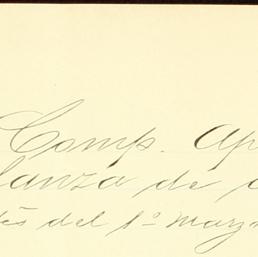 Comp. Ap
lanza de
és del 1º Marz